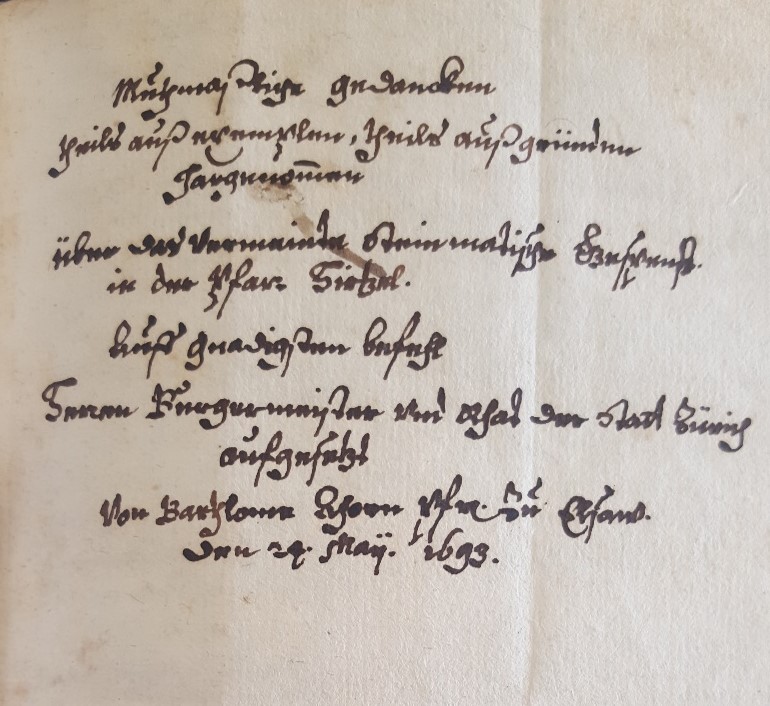 Muthmaßliche gedancken
theils auß exemplen, theils auß gründen
hargenom̄en
über das vermeinte Steinmatische Gespenst.
in der Pfarr Hirtzel.
Auß gnadigsten befehl
Herren Burgermeister und Rhat der Statt Zürich
aufgesetzt
Von Barthlome Anhorn Pfr. Zu Elsaw.
Den 24. Maÿ. 1693.